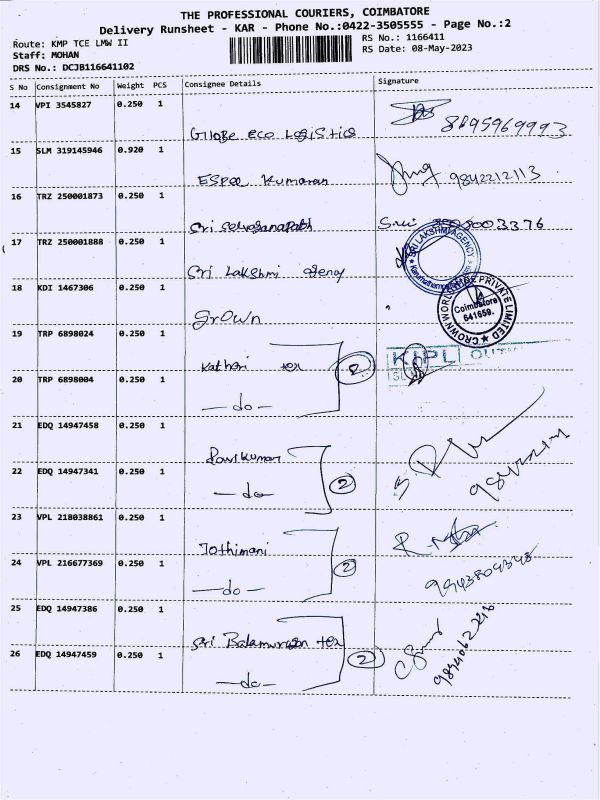 THE PROFESSIONAL COURIERS, COIMBATORE
Delivery Runsheet - KAR - Phone No.:0422-3505555 - Page No.:2
Route: KMP TCE LMW II
RS No.: 1166411
Staff: MOHAN
RS Date: 08-May-2023
DRS No.: DCJB116641102
S No Consignment No Weight PCS Consignee Details Signature
14 VPI 3545827 0.250 1
Globe eco Logistics
8895969993
15 SLM 319145946 0.920 1
Espee Kumaran
9842212113
16 TRZ 250001873 0.250 1
Sri Selvaganapathi
17 TRZ 250001888 0.250 1
Sri Lakshmi Agency
SRI LAKSHMI AGENCY
18 KDI 1467306 0.250 1
Crown
CROWN WORLDWIDE PRIVATE LIMITED
Coimbatore
641659.
19 TRP 6898024 0.250 1
Kathari tex
2
KIPL
20 TRP 6898004 0.250 1
-do-
21 EDQ 14947458 0.250 1
Ravikumar
22 EDQ 14947341 0.250 1
-do-
2
23 VPL 218038861 0.250 1
Jothimani
24 VPL 216677369 0.250 1
-do-
2
25 EDQ 14947386 0.250 1
Sri Balamurugan tex
26 EDQ 14947459 0.250 1
-do-
2